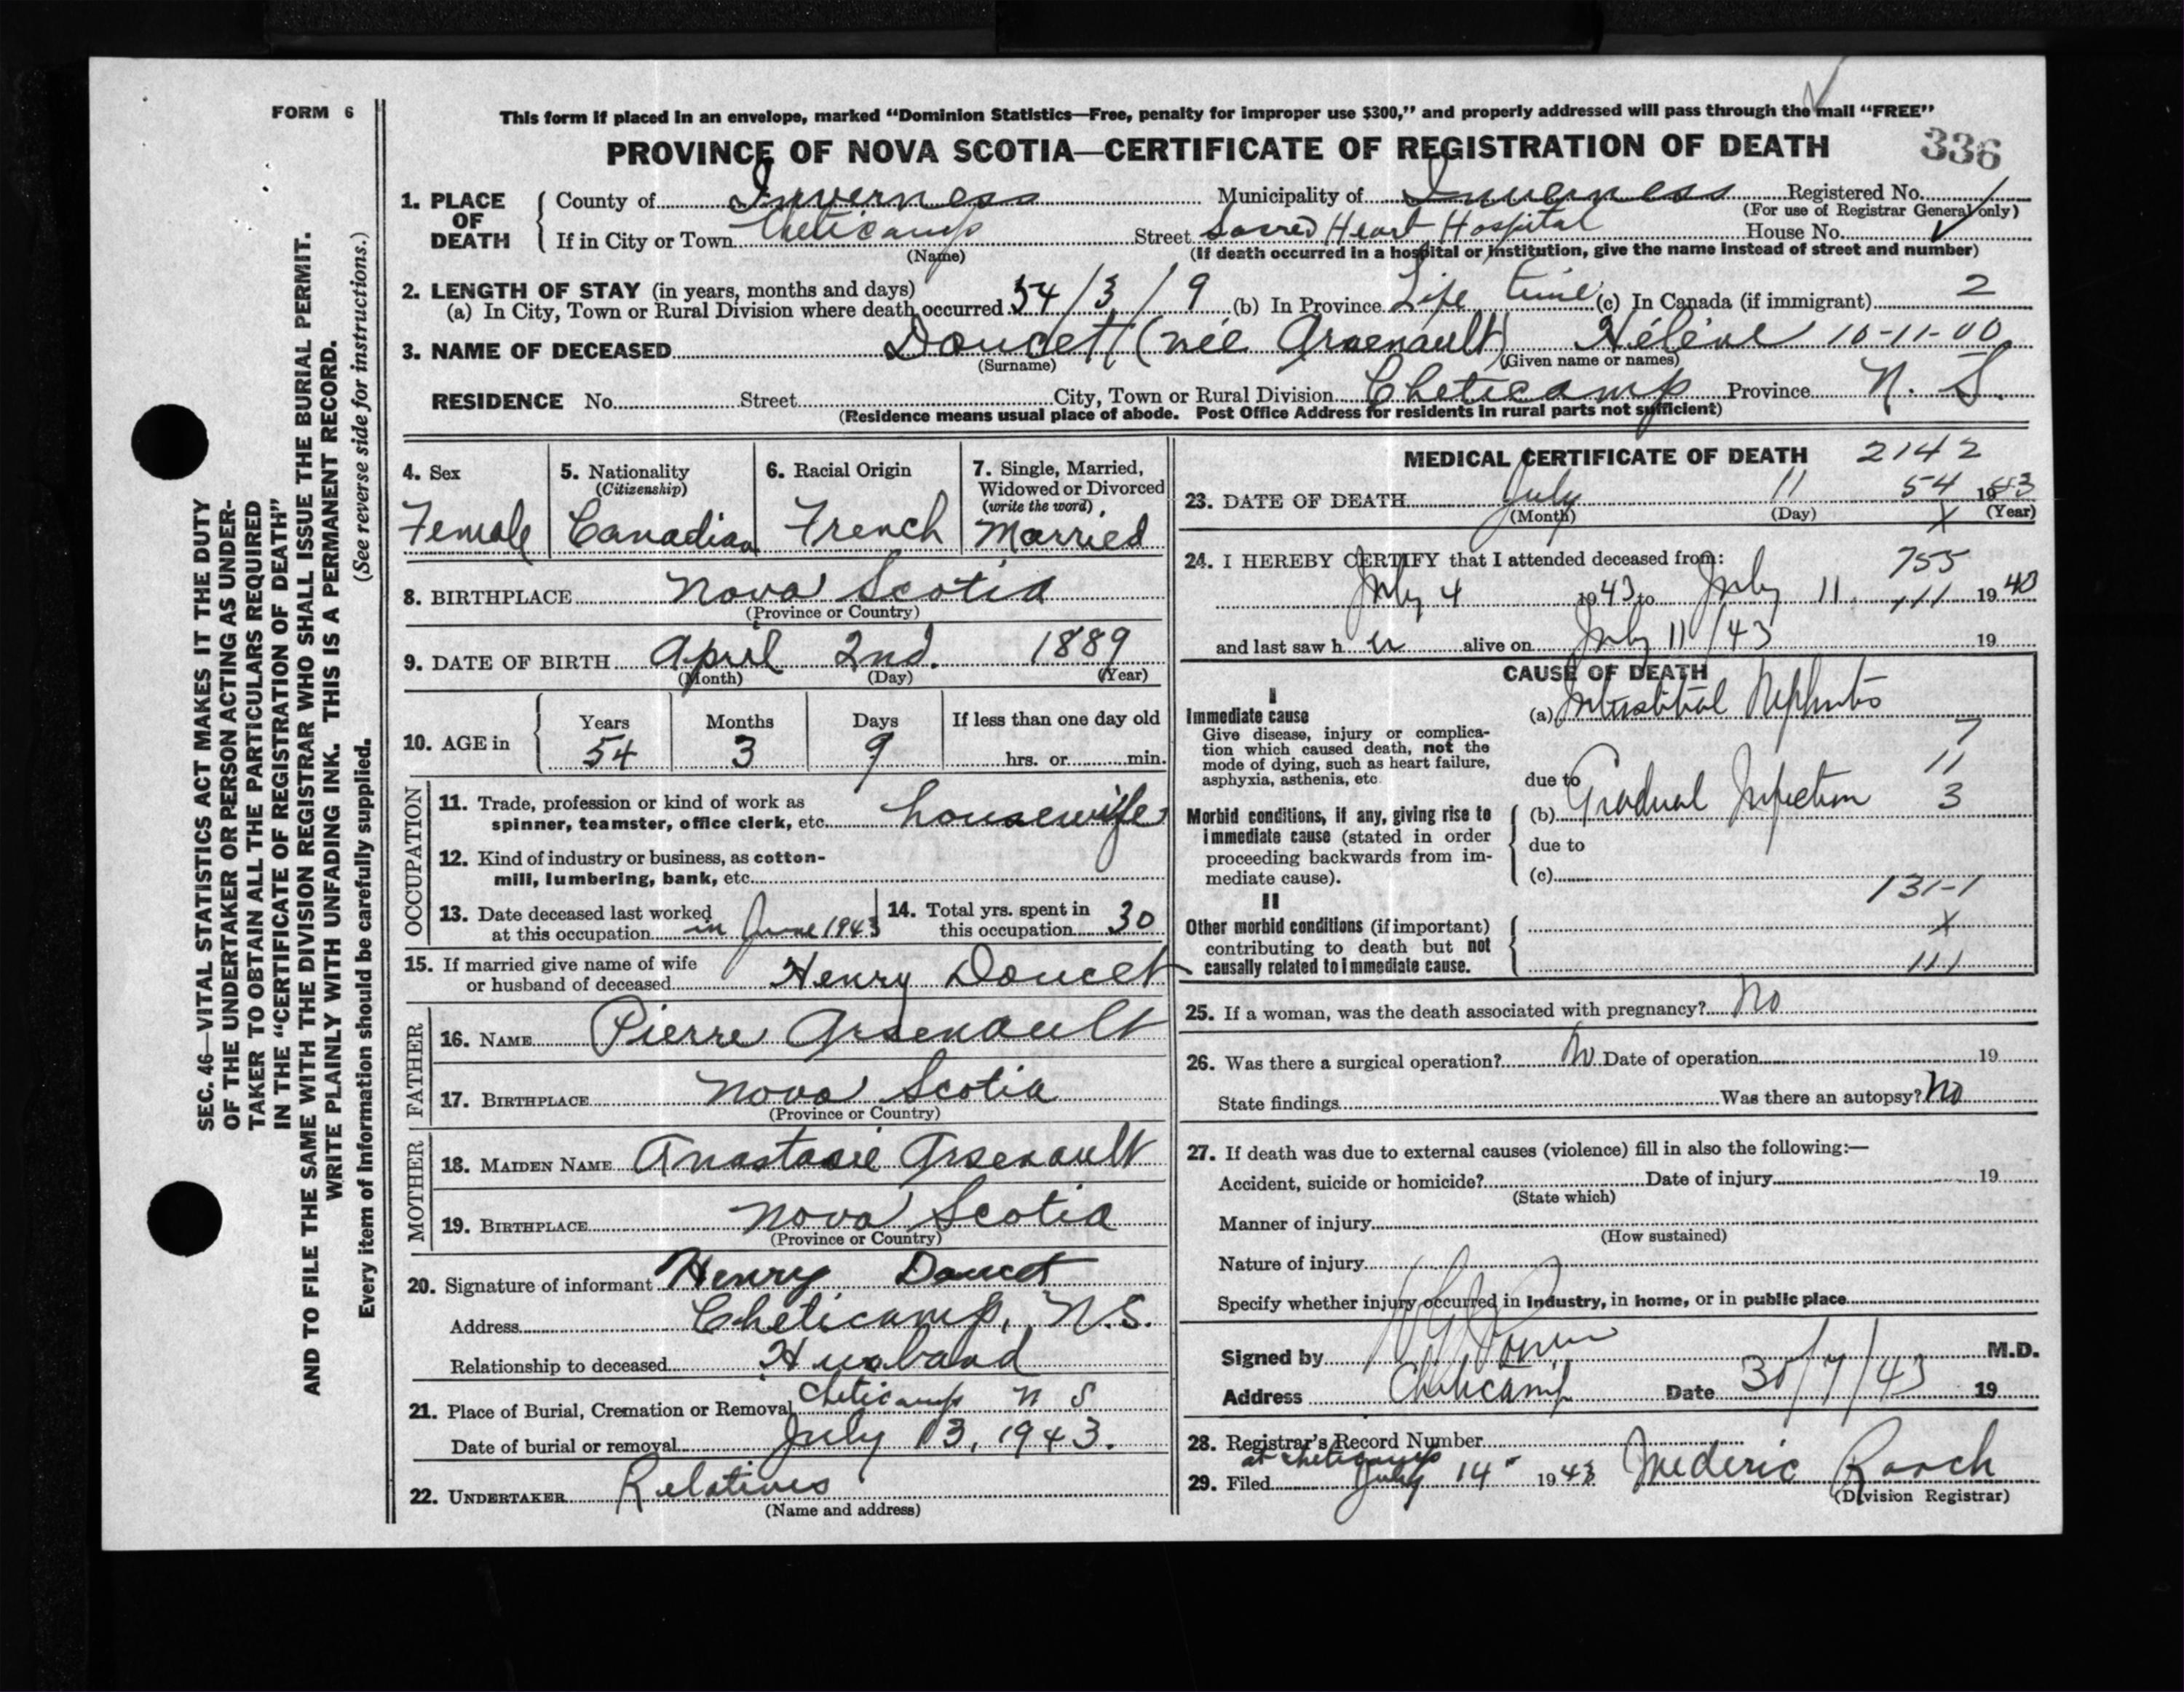 FORM 6
This form if placed in an envelope, marked “Dominion Statistics—Free, penalty for improper use $300,” and properly addressed will pass through the mail “FREE”
PROVINCE OF NOVA SCOTIA—CERTIFICATE OF REGISTRATION OF DEATH 336
1. PLACE OF DEATH County of Inverness Municipality of Inverness Registered No.
(For use of Registrar General only)
If in City or Town Cheticamp Street Sacred Heart Hospital House No.
(Name) (If death occurred in a hospital or institution, give the name instead of street and number)
2. LENGTH OF STAY (in years, months and days)
(a) In City, Town or Rural Division where death occurred 54/3/9 (b) In Province Life time (c) In Canada (if immigrant) 2
3. NAME OF DECEASED Doucet (née Arsenault) Hélène 10-11-00
(Surname) (Given name or names)
RESIDENCE No. Street City, Town or Rural Division Cheticamp Province N. S.
(Residence means usual place of abode. Post Office Address for residents in rural parts not sufficient)
4. Sex
Female
5. Nationality
(Citizenship)
Canadian
6. Racial Origin
French
7. Single, Married,
Widowed or Divorced
(write the word)
Married
8. BIRTHPLACE Nova Scotia
(Province or Country)
9. DATE OF BIRTH April 2nd. 1889
(Month) (Day) (Year)
10. AGE in
Years Months Days If less than one day old
54 3 9 hrs. or min.
OCCUPATION
11. Trade, profession or kind of work as
spinner, teamster, office clerk, etc. housewife
12. Kind of industry or business, as cotton-
mill, lumbering, bank, etc.
13. Date deceased last worked
at this occupation in June 1943
14. Total yrs. spent in
this occupation 30
15. If married give name of wife
or husband of deceased Henry Doucet
FATHER
16. NAME Pierre Arsenault
17. BIRTHPLACE Nova Scotia
(Province or Country)
MOTHER
18. MAIDEN NAME Anastasie Arsenault
19. BIRTHPLACE Nova Scotia
(Province or Country)
20. Signature of informant Henry Doucet
Address Cheticamp, N.S.
Relationship to deceased Husband
21. Place of Burial, Cremation or Removal Cheticamp N S
Date of burial or removal July 13, 1943.
22. UNDERTAKER Relatives
(Name and address)
MEDICAL CERTIFICATE OF DEATH 2142
23. DATE OF DEATH July 11 54 1943
(Month) (Day) X (Year)
24. I HEREBY CERTIFY that I attended deceased from: 755
July 4 1943 to July 11 111 1943
and last saw her alive on July 11/43 19
CAUSE OF DEATH
I
Immediate cause
Give disease, injury or complica-
tion which caused death, not the
mode of dying, such as heart failure,
asphyxia, asthenia, etc.
(a) Interstitial Nephritis
7
11
due to
Morbid conditions, if any, giving rise to
immediate cause (stated in order
proceeding backwards from im-
mediate cause).
(b) Gradual Infection 3
due to
(c)
131-1
II
Other morbid conditions (if important)
contributing to death but not
causally related to immediate cause.
X
111
25. If a woman, was the death associated with pregnancy? No
26. Was there a surgical operation? No Date of operation 19
State findings Was there an autopsy? No
27. If death was due to external causes (violence) fill in also the following:—
Accident, suicide or homicide? Date of injury 19
(State which)
Manner of injury
(How sustained)
Nature of injury
Specify whether injury occurred in Industry, in home, or in public place
Signed by M.D.
Address Cheticamp Date 30/7/43 19
28. Registrar's Record Number
at Cheticamp
29. Filed July 14 1943 Mederic Roach
(Division Registrar)
SEC. 46—VITAL STATISTICS ACT MAKES IT THE DUTY
OF THE UNDERTAKER OR PERSON ACTING AS UNDER-
TAKER TO OBTAIN ALL THE PARTICULARS REQUIRED
IN THE “CERTIFICATE OF REGISTRATION OF DEATH”
AND TO FILE THE SAME WITH THE DIVISION REGISTRAR WHO SHALL ISSUE THE BURIAL PERMIT.
WRITE PLAINLY WITH UNFADING INK. THIS IS A PERMANENT RECORD.
Every item of information should be carefully supplied. (See reverse side for instructions.)